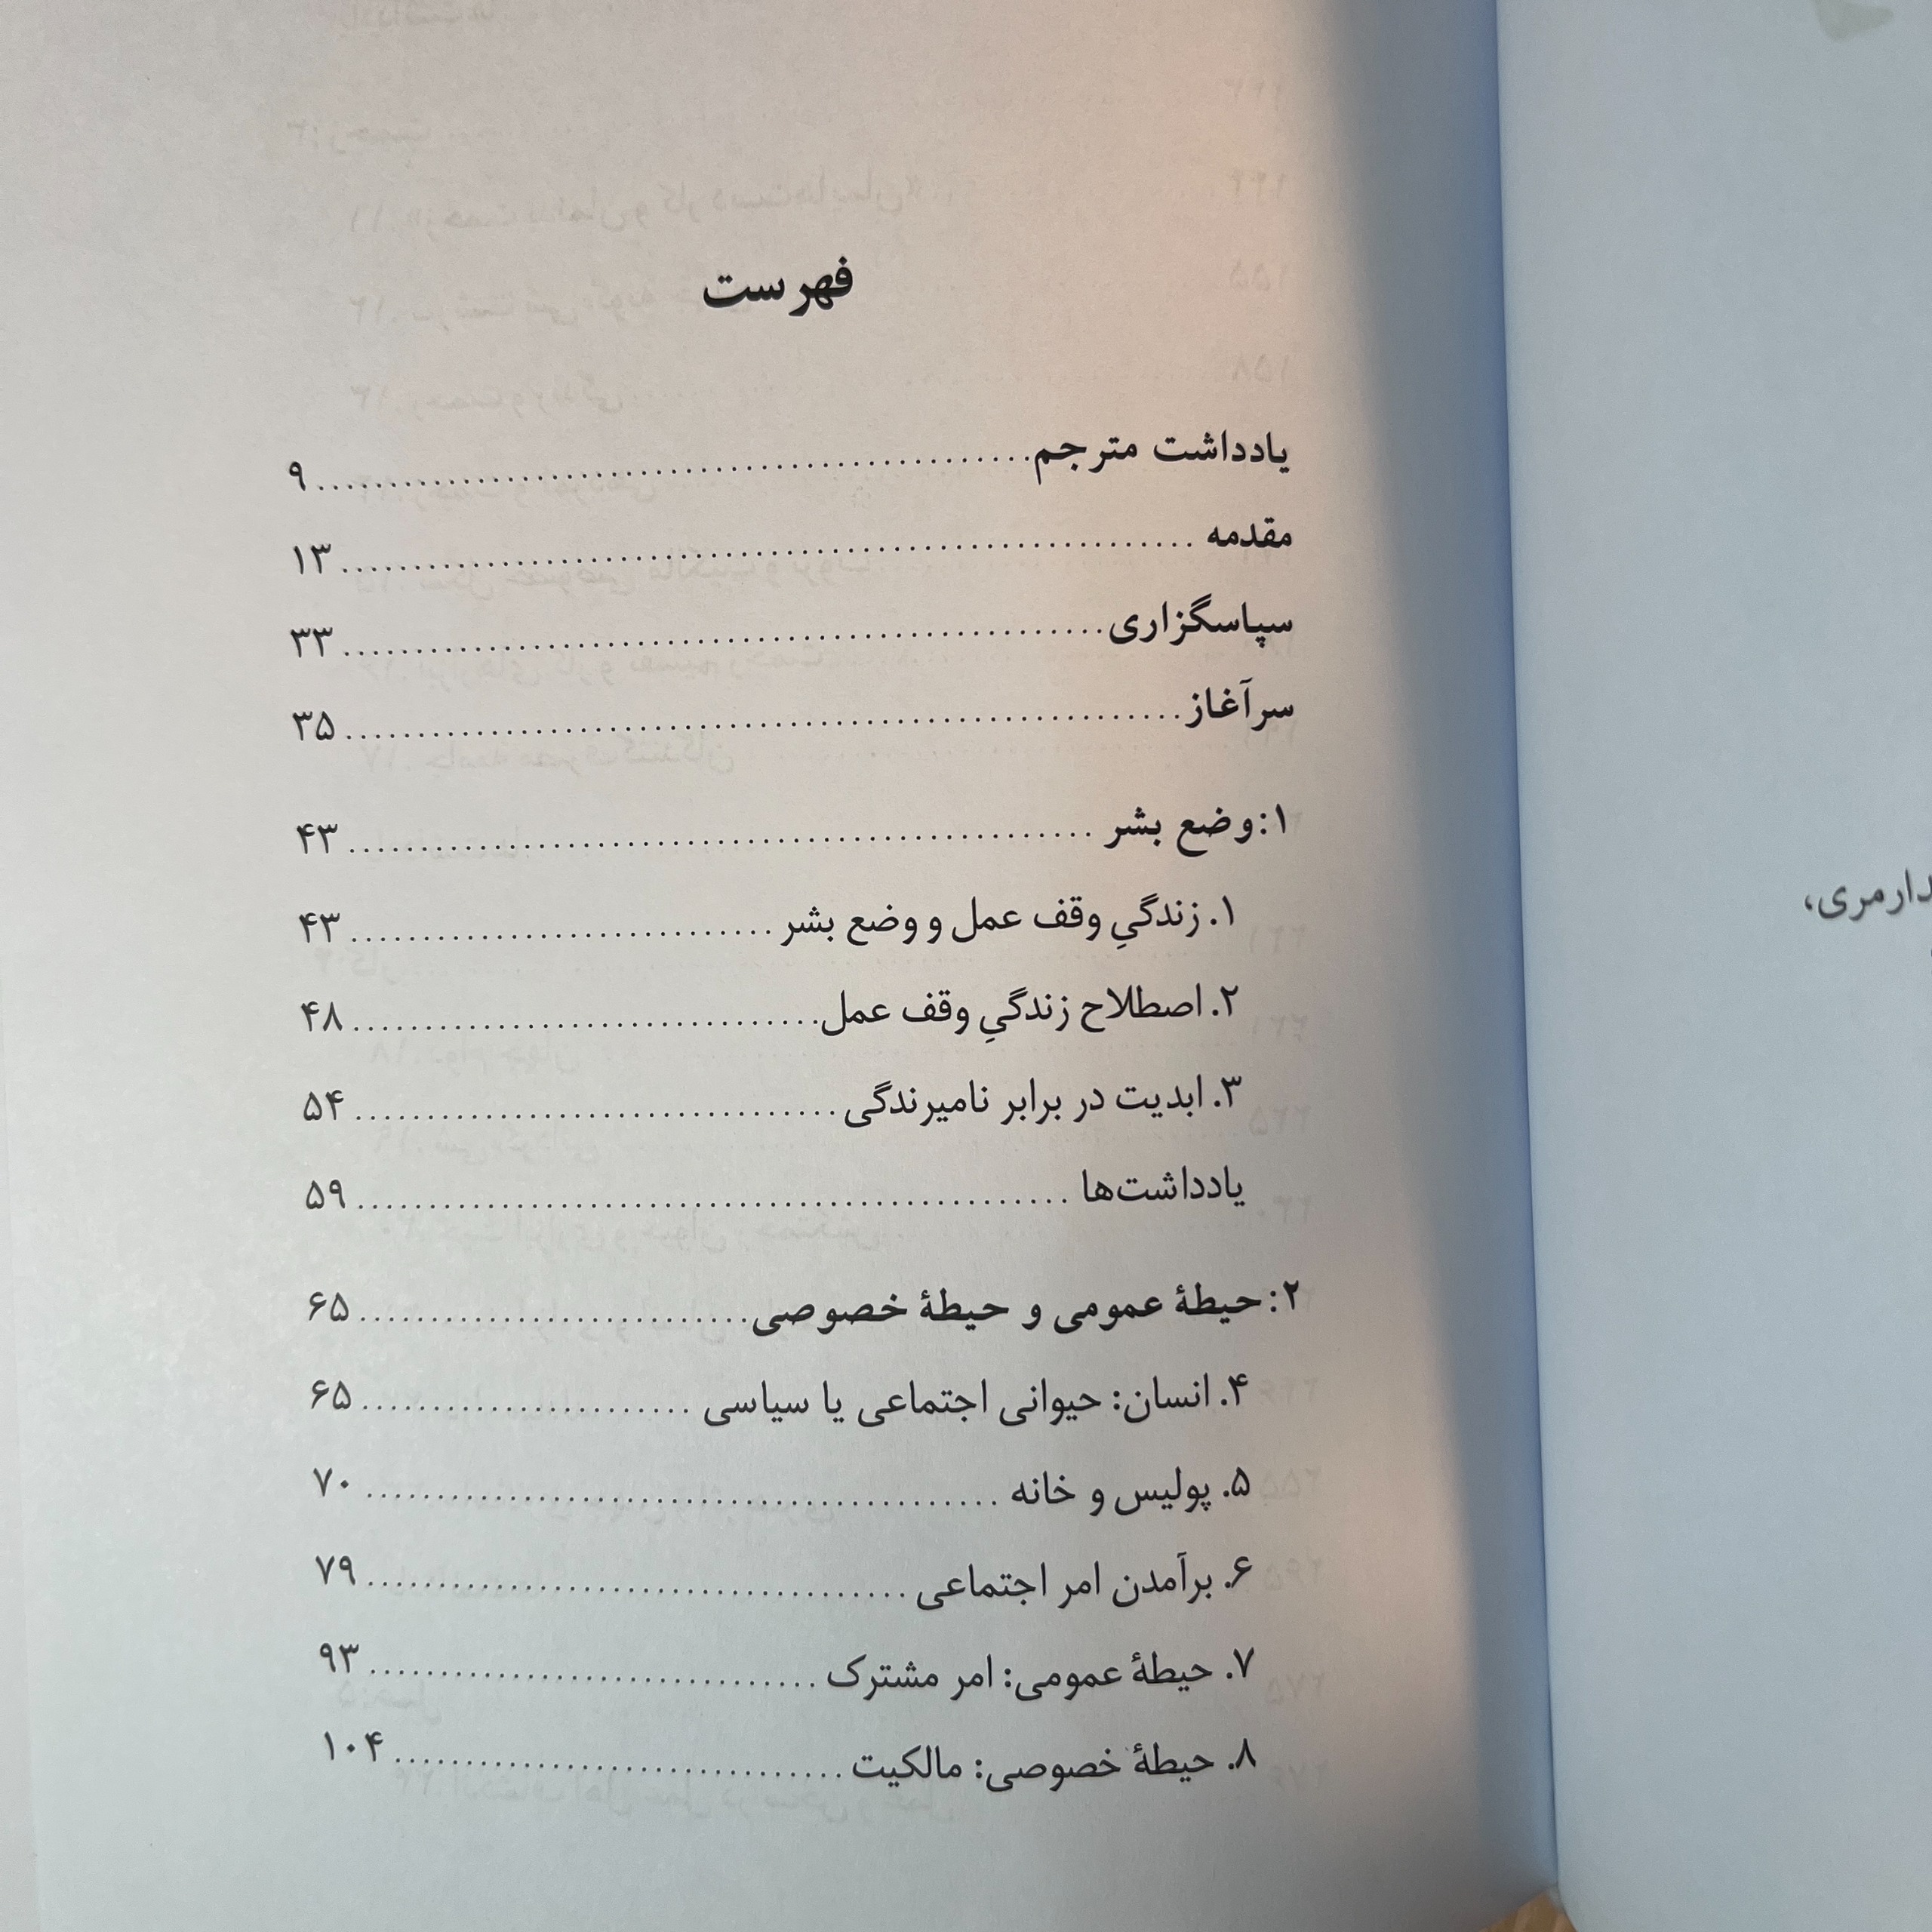 فهرست
یادداشت مترجم ........ ۹
مقدمه ........ ۱۳
سپاسگزاری ........ ۳۳
سرآغاز ........ ۳۵
۱: وضع بشر ........ ۴۳
۱. زندگیِ وقف عمل و وضع بشر ........ ۴۳
۲. اصطلاح زندگیِ وقف عمل ........ ۴۸
۳. ابدیت در برابر نامیرندگی ........ ۵۴
یادداشت‌ها ........ ۵۹
۲: حیطۀ عمومی و حیطۀ خصوصی ........ ۶۵
۴. انسان: حیوانی اجتماعی یا سیاسی ........ ۶۵
۵. پولیس و خانه ........ ۷۰
۶. برآمدن امر اجتماعی ........ ۷۹
۷. حیطۀ عمومی: امر مشترک ........ ۹۳
۸. حیطۀ خصوصی: مالکیت ........ ۱۰۴